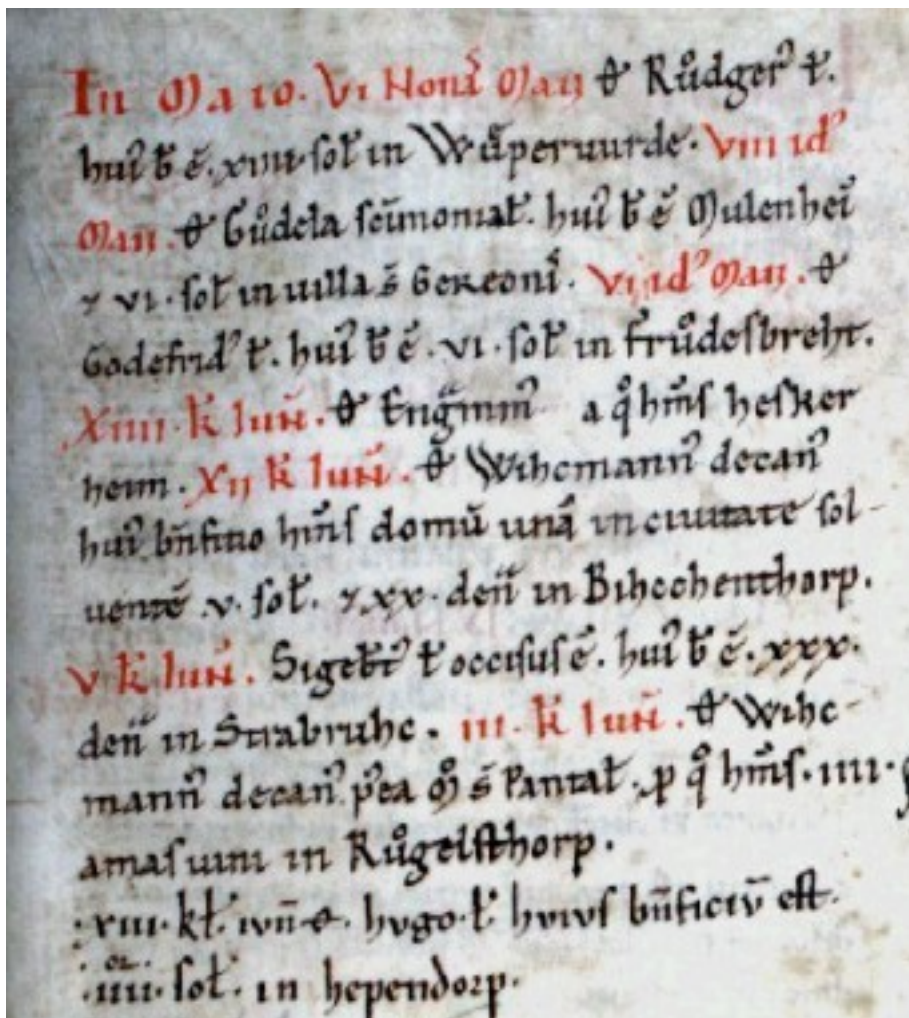 In Maio. VI Non̄ Maii ꝋ Růdger᾽ ł.
hui᾽ b̄ ē. xiiii. sol̄ in Wāperuurde. VIII id᾽
Maii. ꝋ Gůdela sc̄imonial̄. hui᾽ b̄ ē Mulenhei᷄
⁊ VI. sol̄ in uilla s̄ Gereoni᾽. VI id᾽ Maii. ꝋ
Godefrid᾽ ł. hui᾽ b̄ ē. VI. sol̄ in frůdesbreht.
XIIII. k̄ Iun̄. ꝋ a qͦ hm̄s hesker
heim. XII k̄ Iun̄. ꝋ Wihcmann᾽ decan᾽
hui᾽ bn̄fitio hm̄s domū unā in ciuitate sol-
uentē .v. sol̄. ⁊ xx. den̄ in Bihcchenthorp.
V k̄ Iun̄. Sigeb̄t᾽ ł occisus ē. hui᾽ b̄ ē. xxx.
den̄ in Strabruhc. III. k̄ Iun̄. ꝋ Wihc-
mann᾽ decan᾽ p̄ea M᷎ s̄ Pantal̄. ꝑ qͦ hm̄s. IIII.
amas uini in Růgelsthorp.
.XIII. kl̄. iun̄ ꝋ. hvgo. ł. hvivs bn̄ficiv̄ est.
.IIII. sol̄. in hependorp.